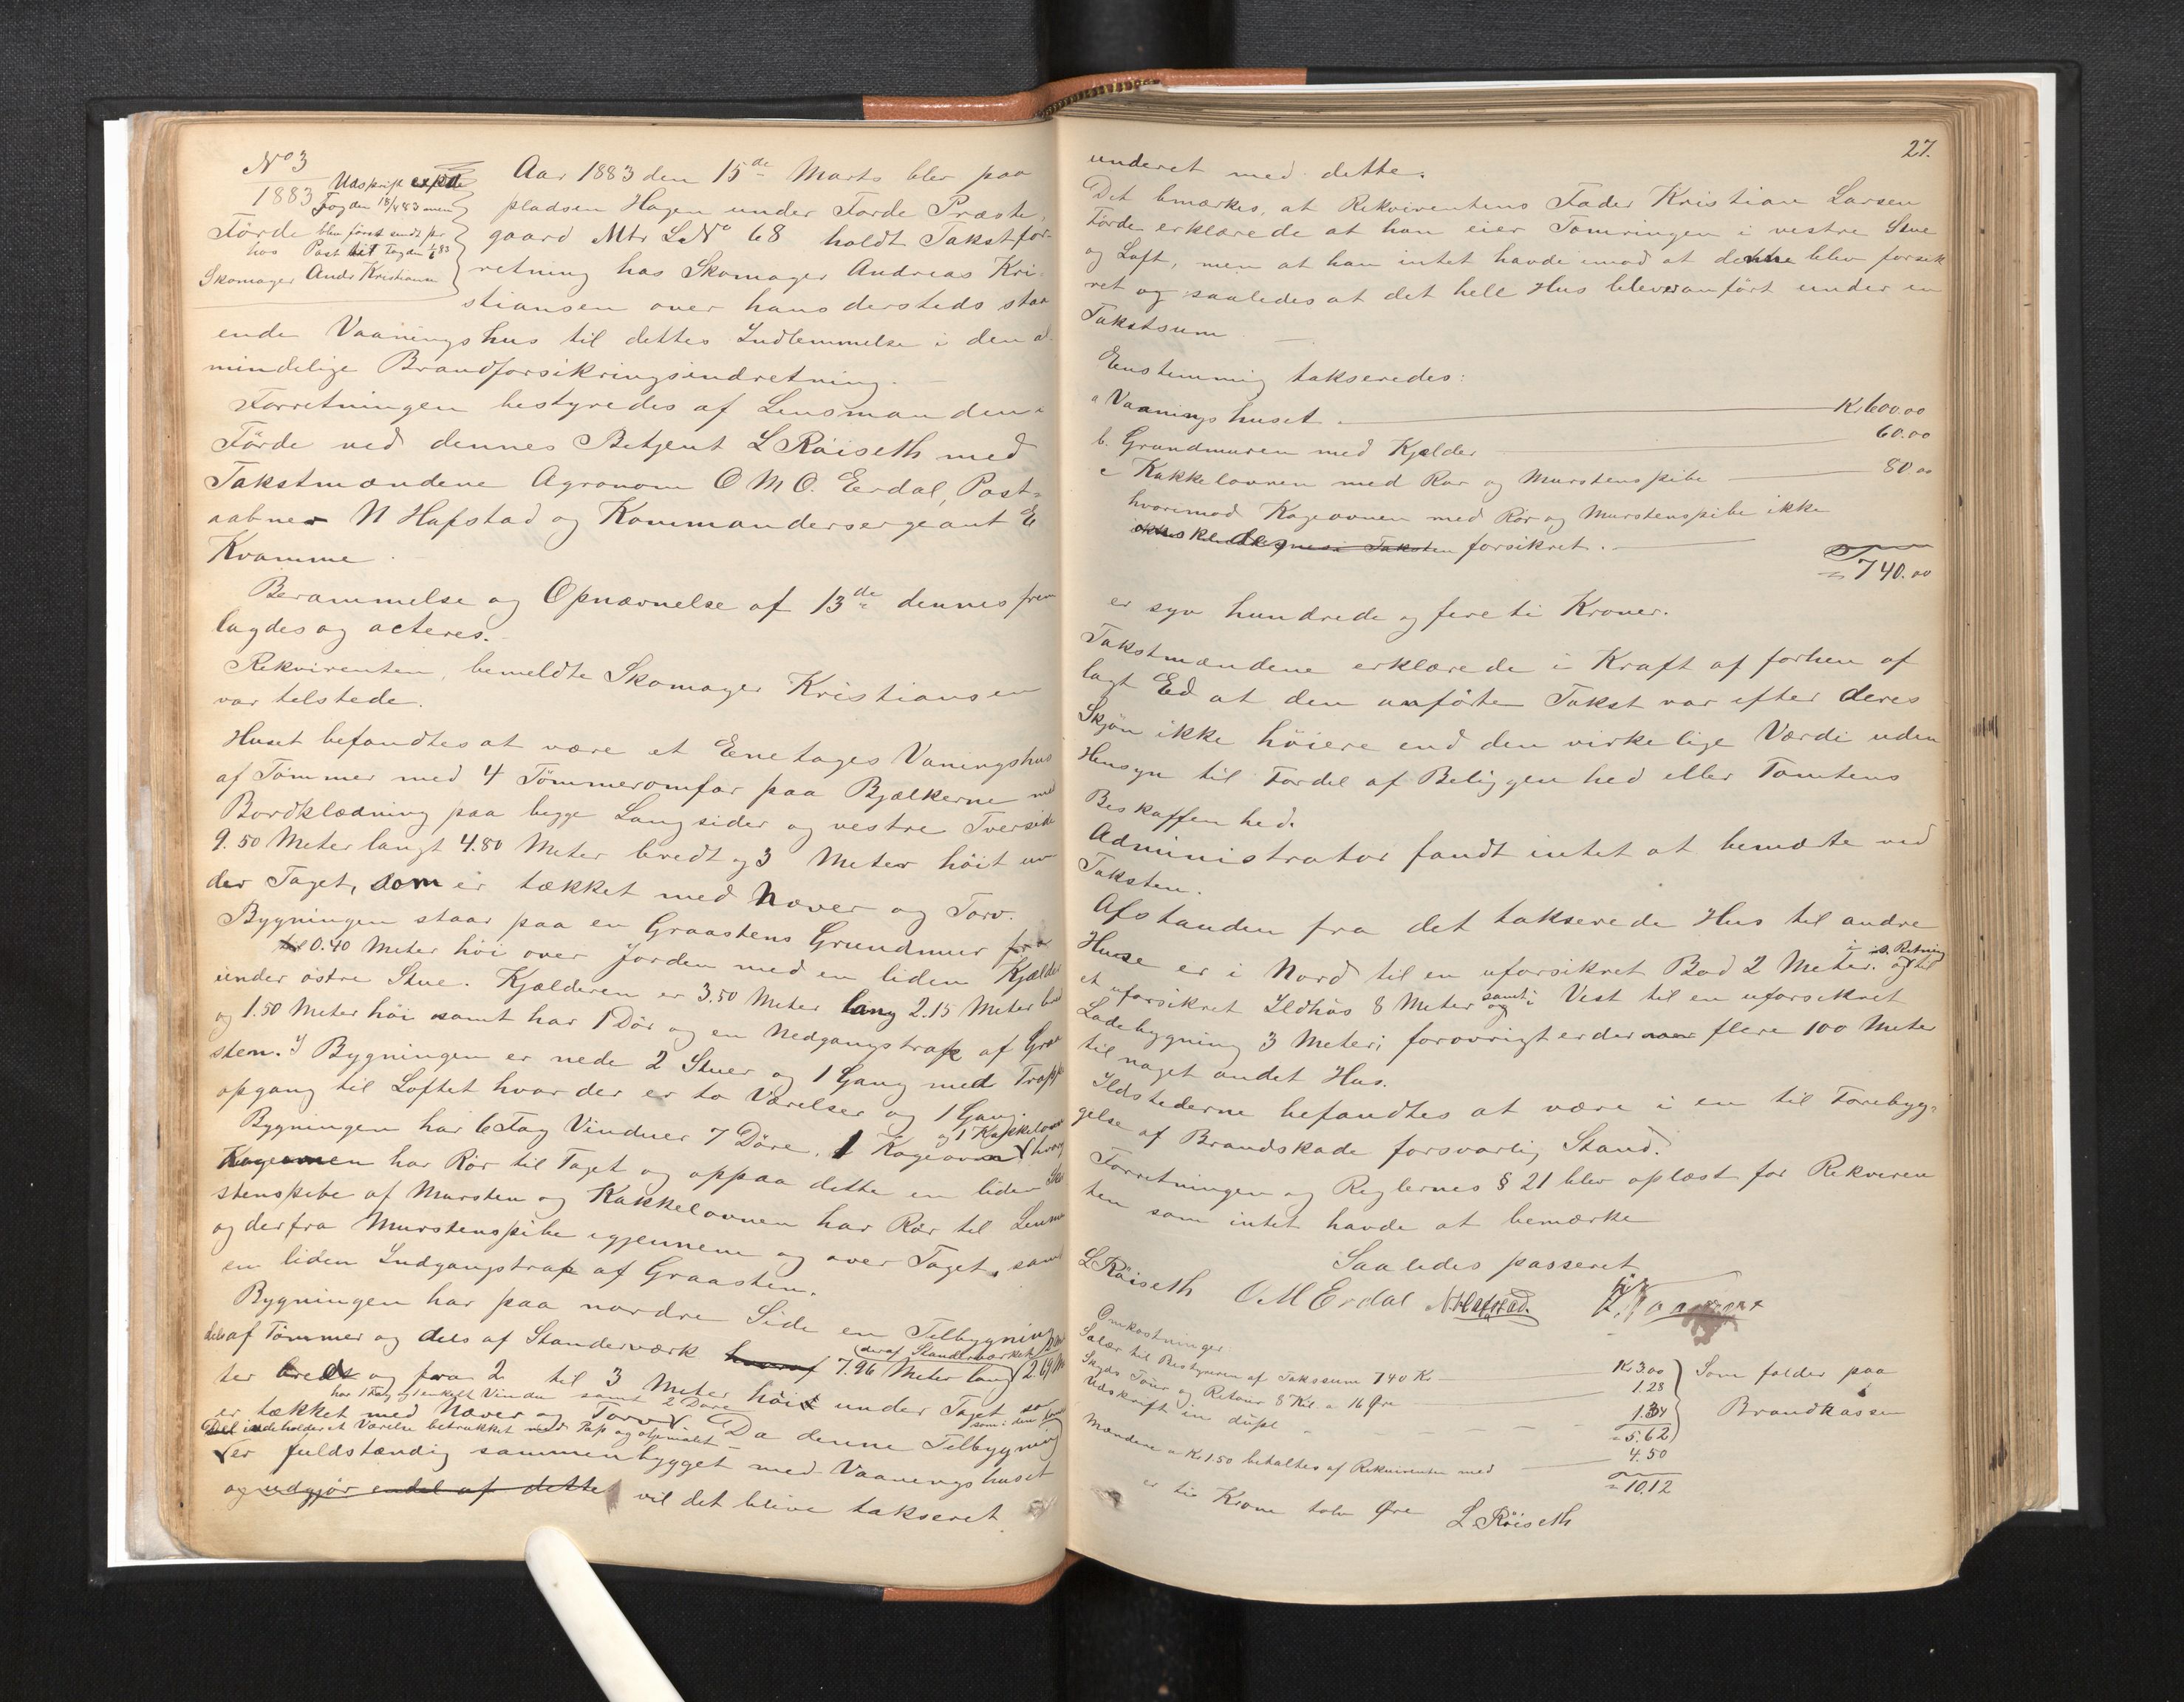 No 3
1883
Udskrift expd
Fogden 18/4 83 men
Førde blev først sendt pr
hos Post til Fogden 1/6 83
Skomager Andr Kristiansen
Aar 1883 den 15de Marts blev paa
pladsen Hagen under Førde Præste-
gaard Mtr L No 68 holdt Takstfor-
retning hos Skomager Andreas Kri-
stiansen over hans dersteds staa
ende Vaaningshus til dettes Indlemmelse i den al
mindelige Brandforsikringsindretning.
Forretningen bestyredes af Lensmanden i
Førde ved dennes Betjent L Røiseth med
Takstmændene Agronom O M O. Erdal, Post-
aabner N Hafstad og Kommandersergeant E
Kvamme.
Berammelse og Opnævnelse af 13de dennes frem
lagdes og acteres.
Rekvirenten, bemeldte Skomager Kristiansen
var tilstede.
Huset befandtes at være et Enetages Vaningshus
af Tømmer med 4 Tømmeromfar paa Bjælkerne med
Bordklædning paa begge Langsider og vestre Tverside
9.50 Meter langt 4.80 Meter bredt og 3 Meter høit un
der Taget, som er tækket med Næver og Torv.
Bygningen staar paa en Graastens Grundmur fra
til 0.40 Meter høi over Jorden med en liden Kjælder
under østre Stue. Kjælderen er 3.50 Meter lang 2.15 Meter bred
og 1.50 Meter høi samt har 1 Dør og en Nedgangstrap af Graa
sten. I Bygningen er nede 2 Stuer og 1 Gang med Trappe
opgang til Loftet hvor der er to Værelser og 1 Gang.
Bygningen har 6 Fag Vinduer 7 Døre, 1 Kogeovn og 1 Kakkelovn hvoraf
Kogeovnen har Rør til Taget og oppaa dette en liden Sko
stenspibe af Mursten og Kakkelovnen har Rør til Lemmen
og derfra Murstenspibe igjennem og over Taget, samt
en liden Indgangstrap af Graasten.
Bygningen har paa nordre Side en Tilbygning
dels af Tømmer og dels af Standerværk hvoraf 7.96 Meter lang (deraf Standerværket 2.69 Me
ter bredt og fra 2 til 3 Meter høit under Taget so
har 1 Fag og 1 enkelt Vindu samt 2 Døre
er tækket med Næver og Torv. Da denne Tilbygning
Del indeholder et Værelse betrukket med Pap og oljemalet
er fuldstændig sammenbygget med Vaaningshuset
og udgjør endel af dette vil det blive takseret
27.
underet med dette.
Det bemærkes, at Rekvirentens Fader Kristian Larsen
Førde erklærede at han eier Tømringen i vestre Stue
og Loft, men at han intet havde imod at denne blev forsik
ret og saaledes at det hele Hus blev anført under en
Takstsum
Eenstemmig takseredes:
a Vaaningshuset Kr 600.00
b. Grundmuren med Kjælder 60.00
c Kakkelovnen med Rør og Murstenspibe 80.00
hvorimod Kogeovnen med Rør og Murstenspibe ikke
ønskedes medtagne i Taksten forsikret.
= 740.00
er syv hundrede og fireti Kroner.
Takstmændene erklærede i Kraft af forhen af
lagt Ed at den anførte Takst var efter deres
Skjøn ikke høiere end den virkelige Værdi uden
Hensyn til Fordel af Beliggenhed eller Tomtens
Beskaffenhed.
Administrator fandt intet at bemærke ved
Taksten.
Afstanden fra det takserede Hus til andre
Huse er i Nord til en uforsikret Bod 2 Meter. og i s. Retning til
et uforsikret Ildhus 8 Meter og samt i Vest til en uforsikret
Ladebygning 3 Meter; forøvrigt er der flere 100 Meter
til noget andet Hus.
Ildstederne befandtes at være i en til Forebyg-
gelse af Brandskade forsvarlig Stand.
Forretningen og Reglernes § 21 blev oplæst for Rekviren
ten som intet havde at bemærke
Saaledes passeret
L Røiseth O M Erdal N Hafstad. E. Kvamme
Omkostninger
Salær til Bestyreren af Takssum 740 Kr Kr 3.00
Skyds Tour og Retour 8 Kil. a 16 Øre 1.28
Udskrift in dupl 1.34
= 5.62
Som falder paa
Brandkassen
Mændene a Kr 1.50 betaltes af Rekvirenten med 4.50
= 10.12
er ti Krone tolv Øre L. Røiseth